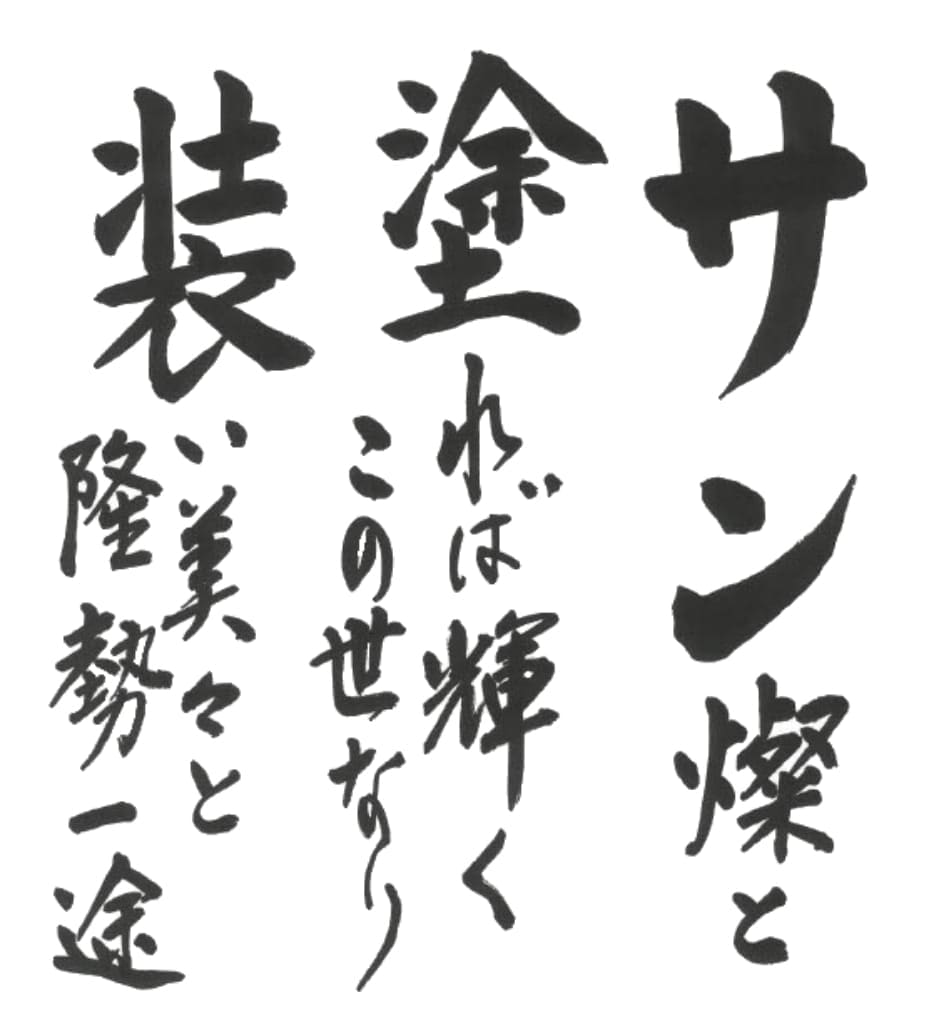 サン燦と
塗れば輝く
この世なり
装い美々と
隆勢一途